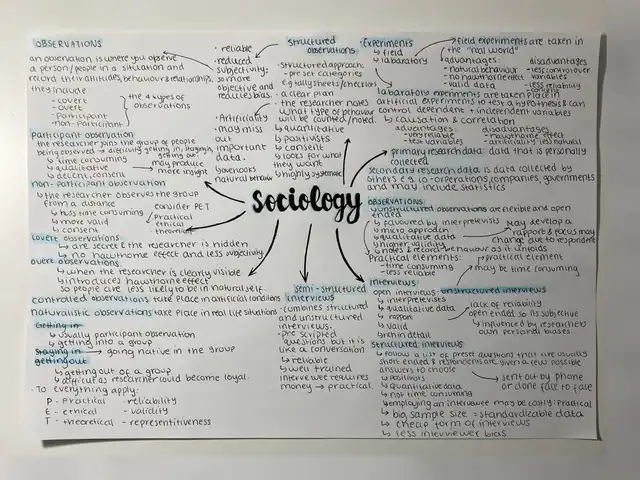 OBSERVATIONS
an observation is where you observe
a person/people in a situation and
record their attitudes, behaviour & relationships.
they include
- covert
- overt
- Participant
- non-participant
the 4 types of
observations
Participant observation
the researcher joins the group of people
being observed → difficulty getting in, staying in,
getting out.
↳ time consuming
↳ qualitative
↳ deceit, consent
may produce
more insight
non-participant observation
↳ the researcher observes the group
from a distance
↳ less time consuming
↳ more valid
↳ consent
consider PET
Practical
ethical
theoretical
covert observations
↳ are secret & the researcher is hidden
↳ no hawthorne effect and less subjectivity.
overt observations
↳ when the researcher is clearly visible
↳ introduces hawthorne effect
so people are less likely to be in natural self.
controlled observations take place in artificial conditions
naturalistic observations take place in real life situations
Getting in
↳ usually participant observation
↳ getting into a group
Staying in → going native in the group
getting out
↳ getting out of a group
↳ difficult as researcher could become loyal.
· To everything apply:
P - Practical - reliability
E - ethical - validity
T - theoretical - representitiveness
· reliable
· reduced
subjectivity:
so more
objective and
reduces bias.
· Artificiality
· may miss
out
important
data.
structured
observations
· structured approach:
- pre set categories
e.g tally sheets/checklists
- a clear plan
· the researcher notes
what type of behaviour
will be counted/noted.
↳ quantitative
↳ positivists
↳ consent
↳ looks for what
they want
↳ highly systematic
Sociology
semi-structured
interviews
· combines structured
and unstructured
interviews.
· pre scripted
questions but it is
like a conversation
↳ reliable
↳ well trained
interviewer requires
money → practical.
Experiments
↳ field
↳ labaratory
→ field experiments are taken in
the "real world"
advantages:
- natural behaviour
- no hawthorne effect
- valid data
disadvantages
- less control over
variables
- less reliability
labaratory experiments are taken place in
artificial experiments to test a hypothesis & can
control dependent + independent variables
↳ causation & correlation
advantages:
- very reliable
- test variables
disadvantages
- hawthorne effect
- artificiality less natural
primary research data: data that is personally
collected
secondary research data is data collected by
others e.g co-orperations, companies, governments
and may include statistics
OBSERVATIONS:
↳ unstructured observations are flexible and open
ended
↳ favoured by interpretivists
↳ micro approach
↳ qualitative data
↳ higher validity
↳ notes & record behaviour as it unfolds
may develop a
rapport & focus may
change due to respondent
Practical elements:
- time consuming
- less reliable
→ practical element
may be time consuming
interviews
open interviews: unstructured interviews
↳ interpretivists
↳ qualitative data
↳ rapport
↳ valid
↳ rich in detail
lack of reliability
open ended so its subjective
↳ influenced by researchers
own personal biases.
Structured interviews
↳ follow a list of preset question that are usually
short ended & responders are given a few possible
answers to choose
↳ positivists
↳ quantitative data
↳ not time consuming
sent out by phone
or done face to face
↳ employing an interviewee may be costly: practical
↳ big sample size = standardizable data
↳ cheap form of interviews
↳ less interviewer bias